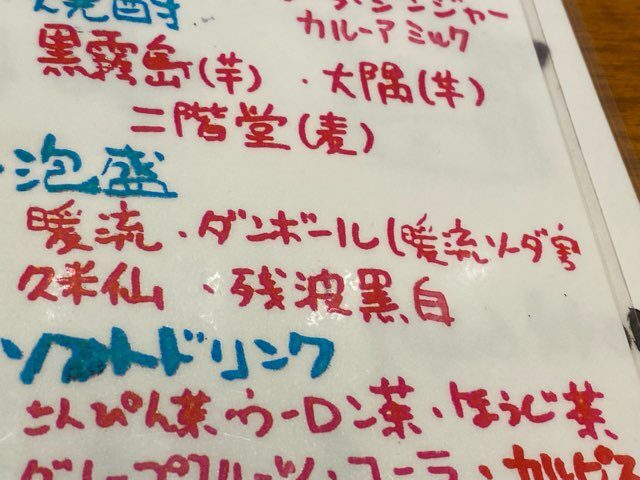 焼酎
ジンジャー
カルーアミルク
黒霧島(芋)・大隅(芋)
二階堂(麦)
・泡盛
暖流・ダンボール(暖流ソーダ割
久米仙・残波黒白
ソフトドリンク
さんぴん茶・ウーロン茶・ほうじ茶
グレープフルーツ・コーラ・カルピス